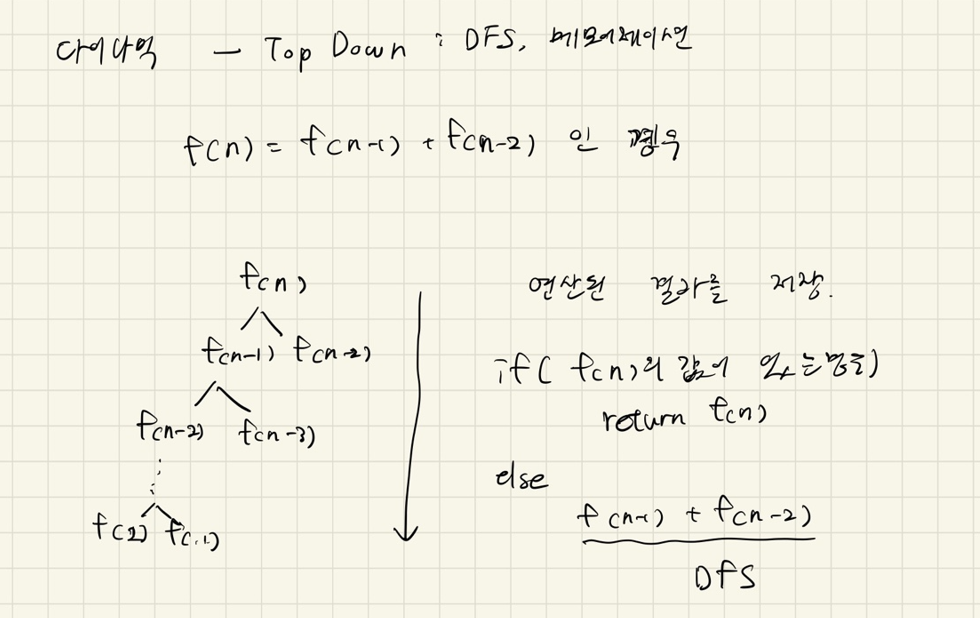 다이나믹 - Top Down : DFS, 메모이제이션
f(n) = f(n-1) + f(n-2) 인 경우
f(n)
f(n-1) f(n-2)
f(n-2) f(n-3)
f(2) f(1)
연산된 결과를 저장.
if( f(n)의 값이 있는경우)
return f(n)
else
f(n-1) + f(n-2)
DFS